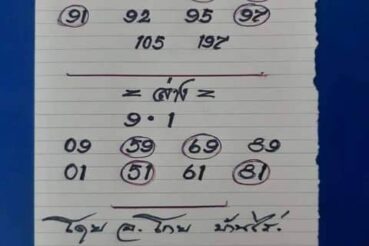 91 92 95 97
105 197
= ล่าง =
9 · 1
09 59 69 89
01 51 61 81
โดย อ. โทน บ้านไร่.